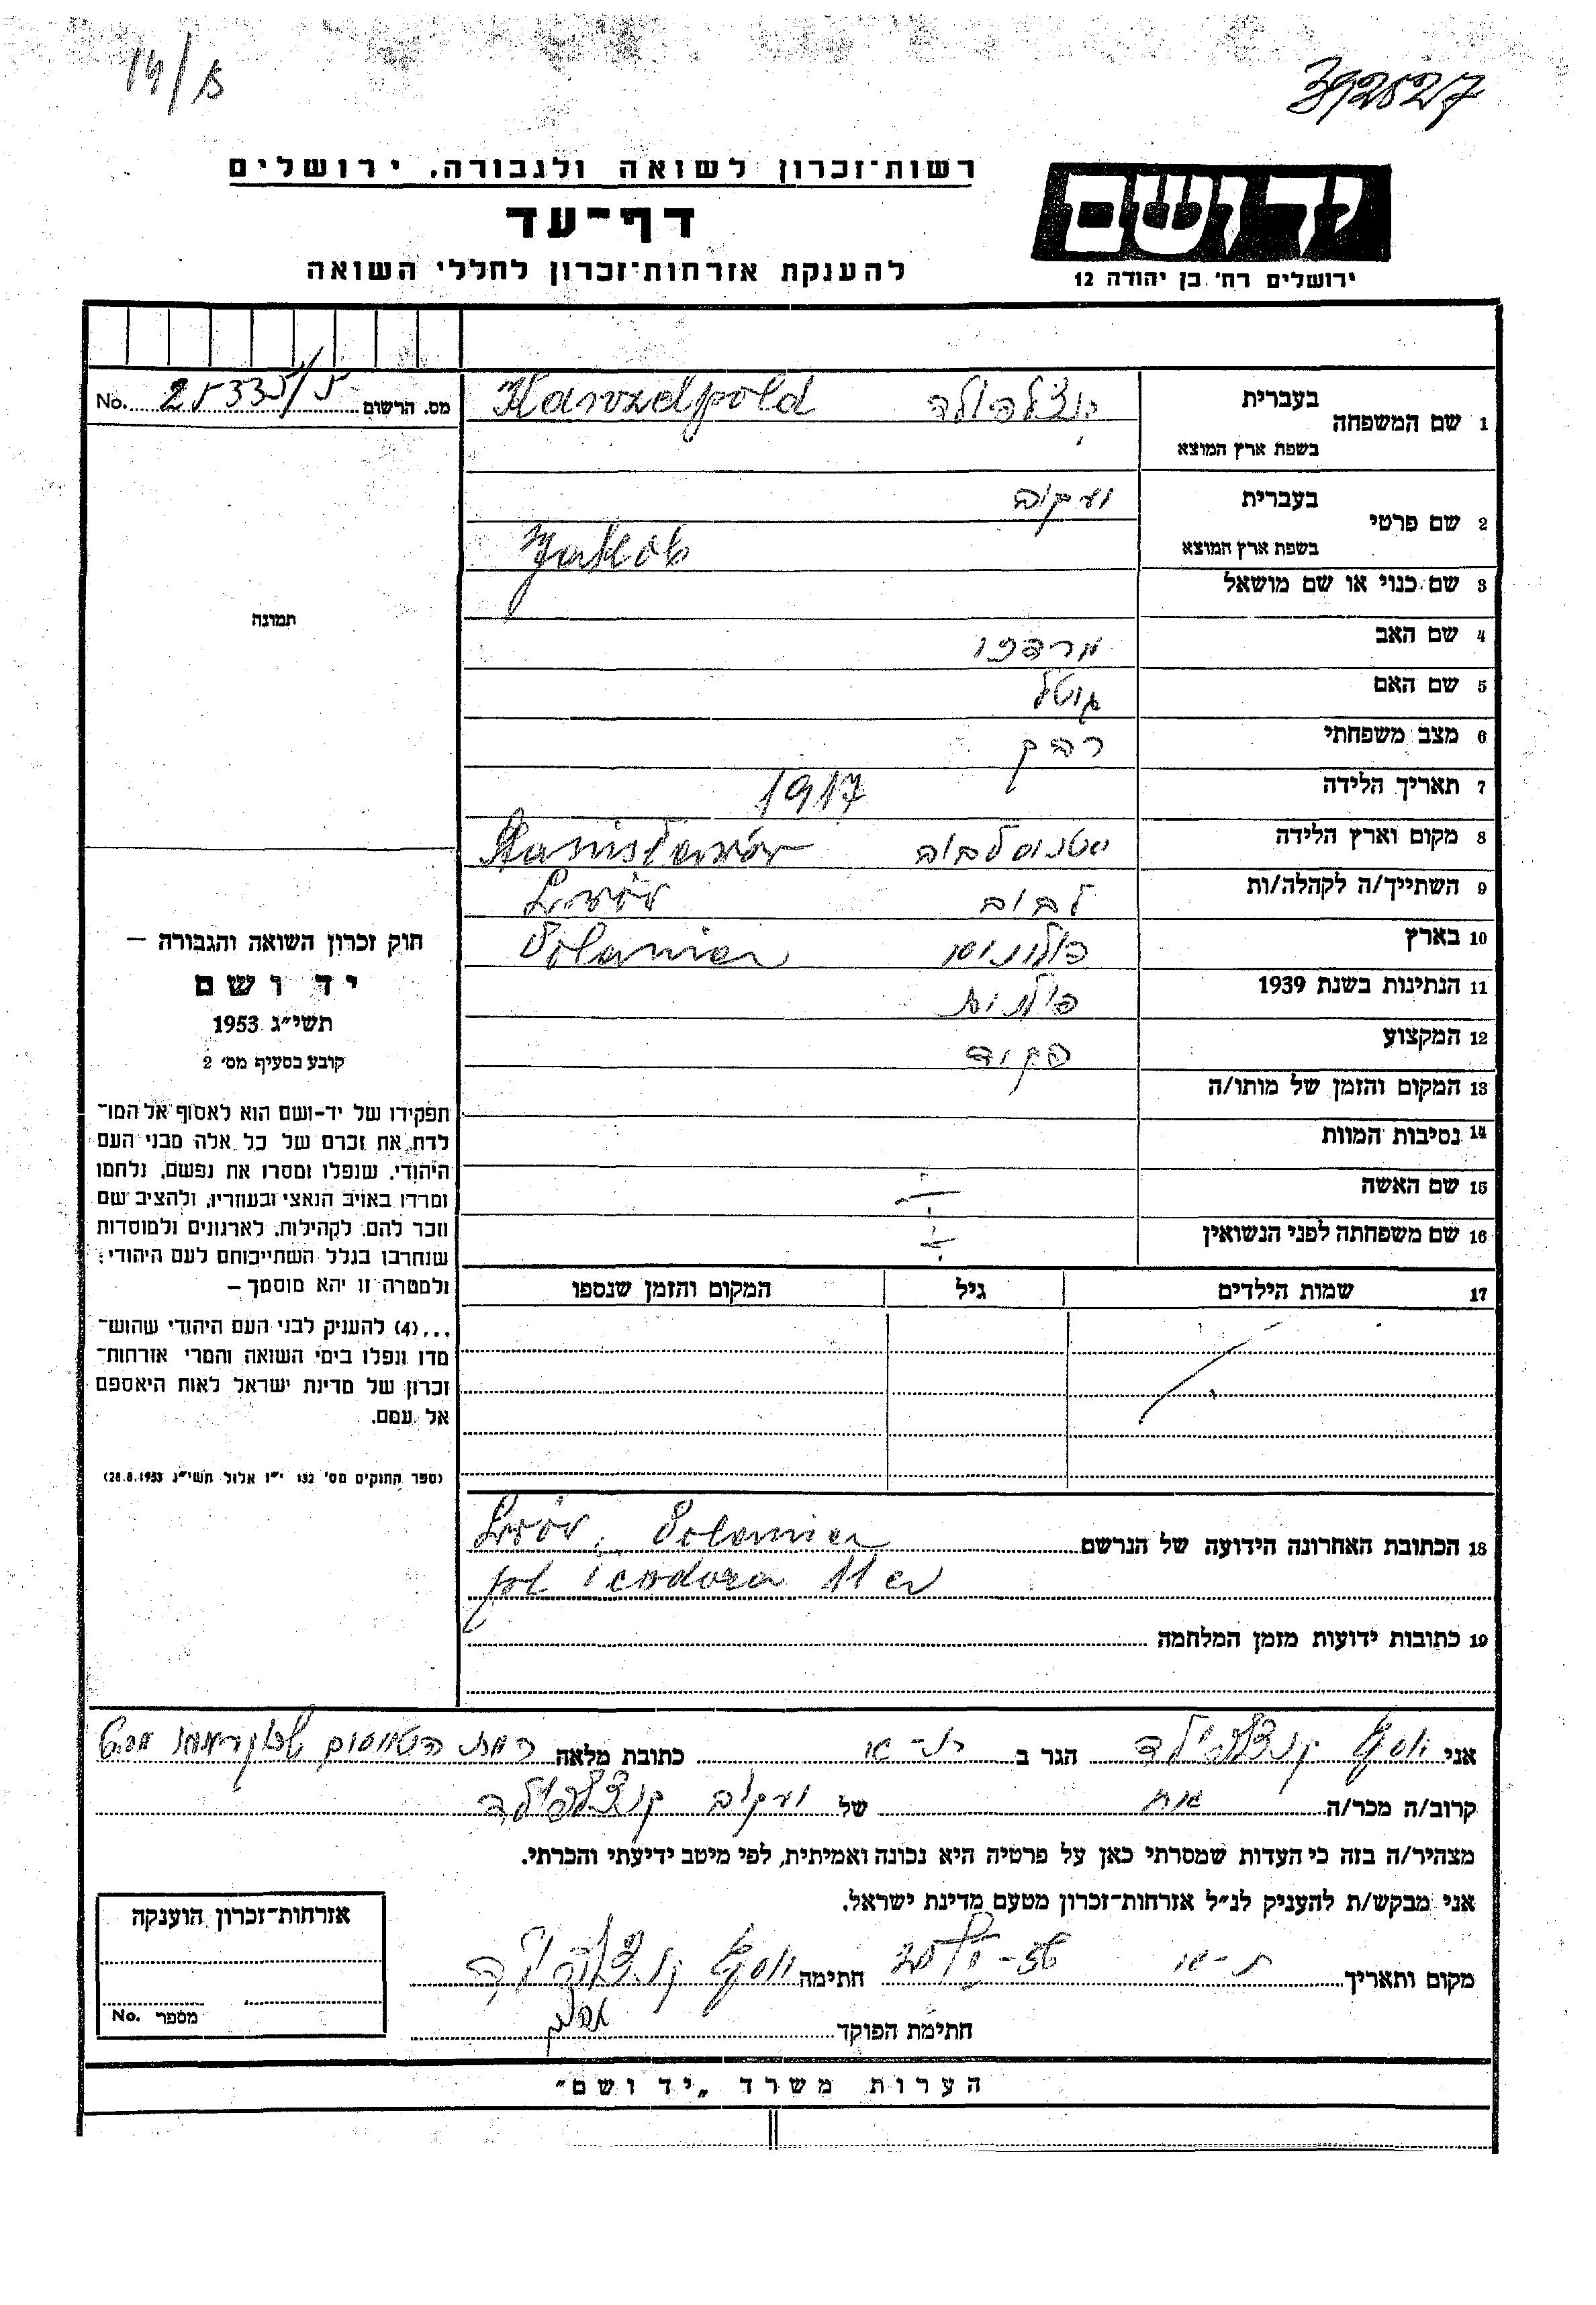 14/8
392527
רשות־זכרון לשואה ולגבורה, ירושלים
דף־עד
להענקת אזרחות־זכרון לחללי השואה
יד ושם
ירושלים רח' בן יהודה 12
מס. הרשום 25335/5 No.
1 שם המשפחה בעברית קנצלפולד Kanzelpold
בשפת ארץ המוצא
2 שם פרטי בעברית יעקוב
בשפת ארץ המוצא Jakob
3 שם כנוי או שם מושאל
4 שם האב מרדכי
5 שם האם גוטל
6 מצב משפחתי רבק
7 תאריך הלידה 1917
8 מקום וארץ הלידה סטניסלבוב Stanisławów
9 השתייך/ה לקהלה/ות לבוב Lwów
10 בארץ פולוניה Polania
11 הנתינות בשנת 1939 פולנית
12 המקצוע פקיד
13 המקום והזמן של מותו/ה
14 נסיבות המוות
15 שם האשה
16 שם משפחתה לפני הנשואין
17 שמות הילדים גיל המקום והזמן שנספו
תמונה
חוק זכרון השואה והגבורה –
יד ושם
תשי״ג 1953
קובע בסעיף מס' 2
תפקידו של יד-ושם הוא לאסוף אל המו־
לדת את זכרם של כל אלה מבני העם
היהודי, שנפלו ומסרו את נפשם, נלחמו
ומרדו באויב הנאצי ובעוזריו, ולהציב שם
וזכר להם, לקהילות, לארגונים ולמוסדות
שנחרבו בגלל השתייכותם לעם היהודי;
ולמטרה זו יהא מוסמך –
...(4) להעניק לבני העם היהודי שהוש־
מדו ונפלו בימי השואה והמרי אזרחות־
זכרון של מדינת ישראל לאות היאספם
אל עמם.
(ספר החוקים מס' 132 י״ז אלול תשי״ג 28.8.1953)
18 הכתובת האחרונה הידועה של הנרשם Lwów, Polania
pl Teodora 11 a
19 כתובות ידועות מזמן המלחמה
אני יוסף קנצלפולד הגר ב ת-א כתובת מלאה
קרוב/ה מכר/ה אח של יעקוב קנצלפולד
מצהיר/ה בזה כי העדות שמסרתי כאן על פרטיה היא נכונה ואמיתית, לפי מיטב ידיעתי והכרתי.
אני מבקש/ת להעניק לנ״ל אזרחות־זכרון מטעם מדינת ישראל.
מקום ותאריך ת-א חתימה יוסף קנצלפולד
חתימת הפוקד
אזרחות־זכרון הוענקה
מספר No.
הערות משרד „יד ושם״